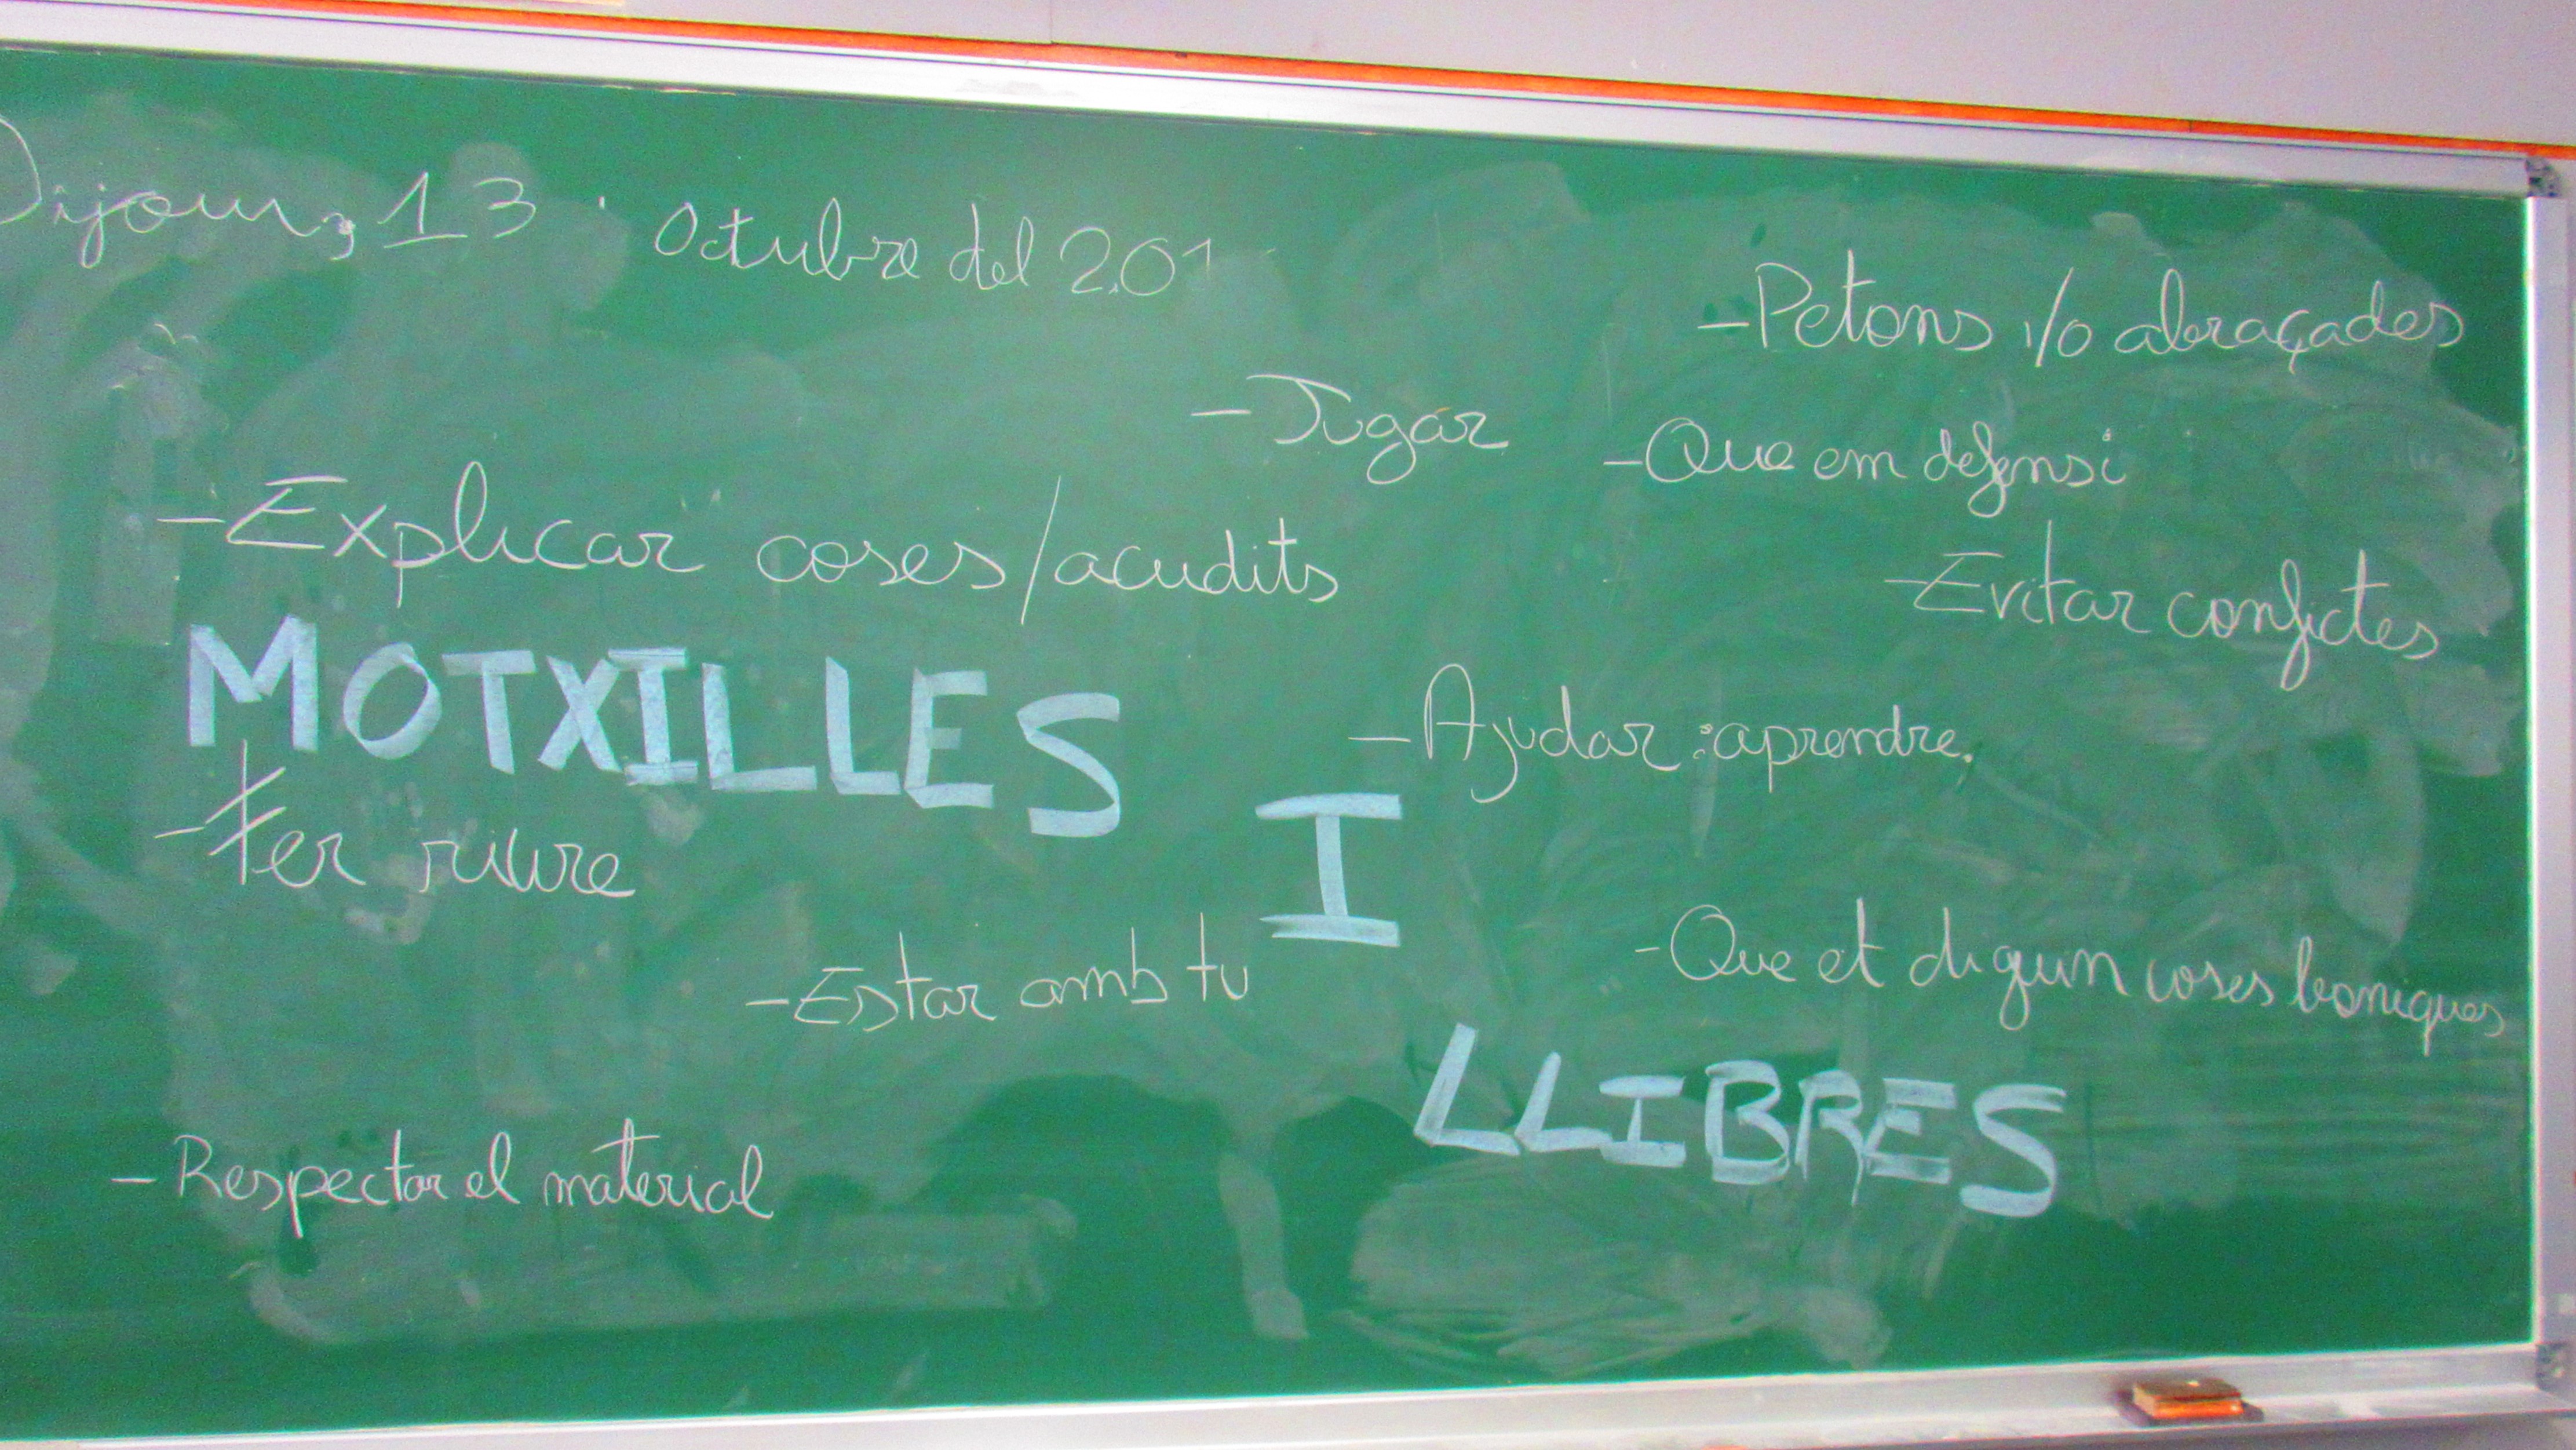 Dijous, 13 Octubre del 2.01
-Petons i/o abraçades
-Jugar
-Que em defensi
-Explicar coses/acudits
-Evitar conflictes
MOTXILLES
-Ajudar: aprendre.
I
-Fer riure
-Estar amb tu
-Que et diguin coses boniques
LLIBRES
-Respectar el material